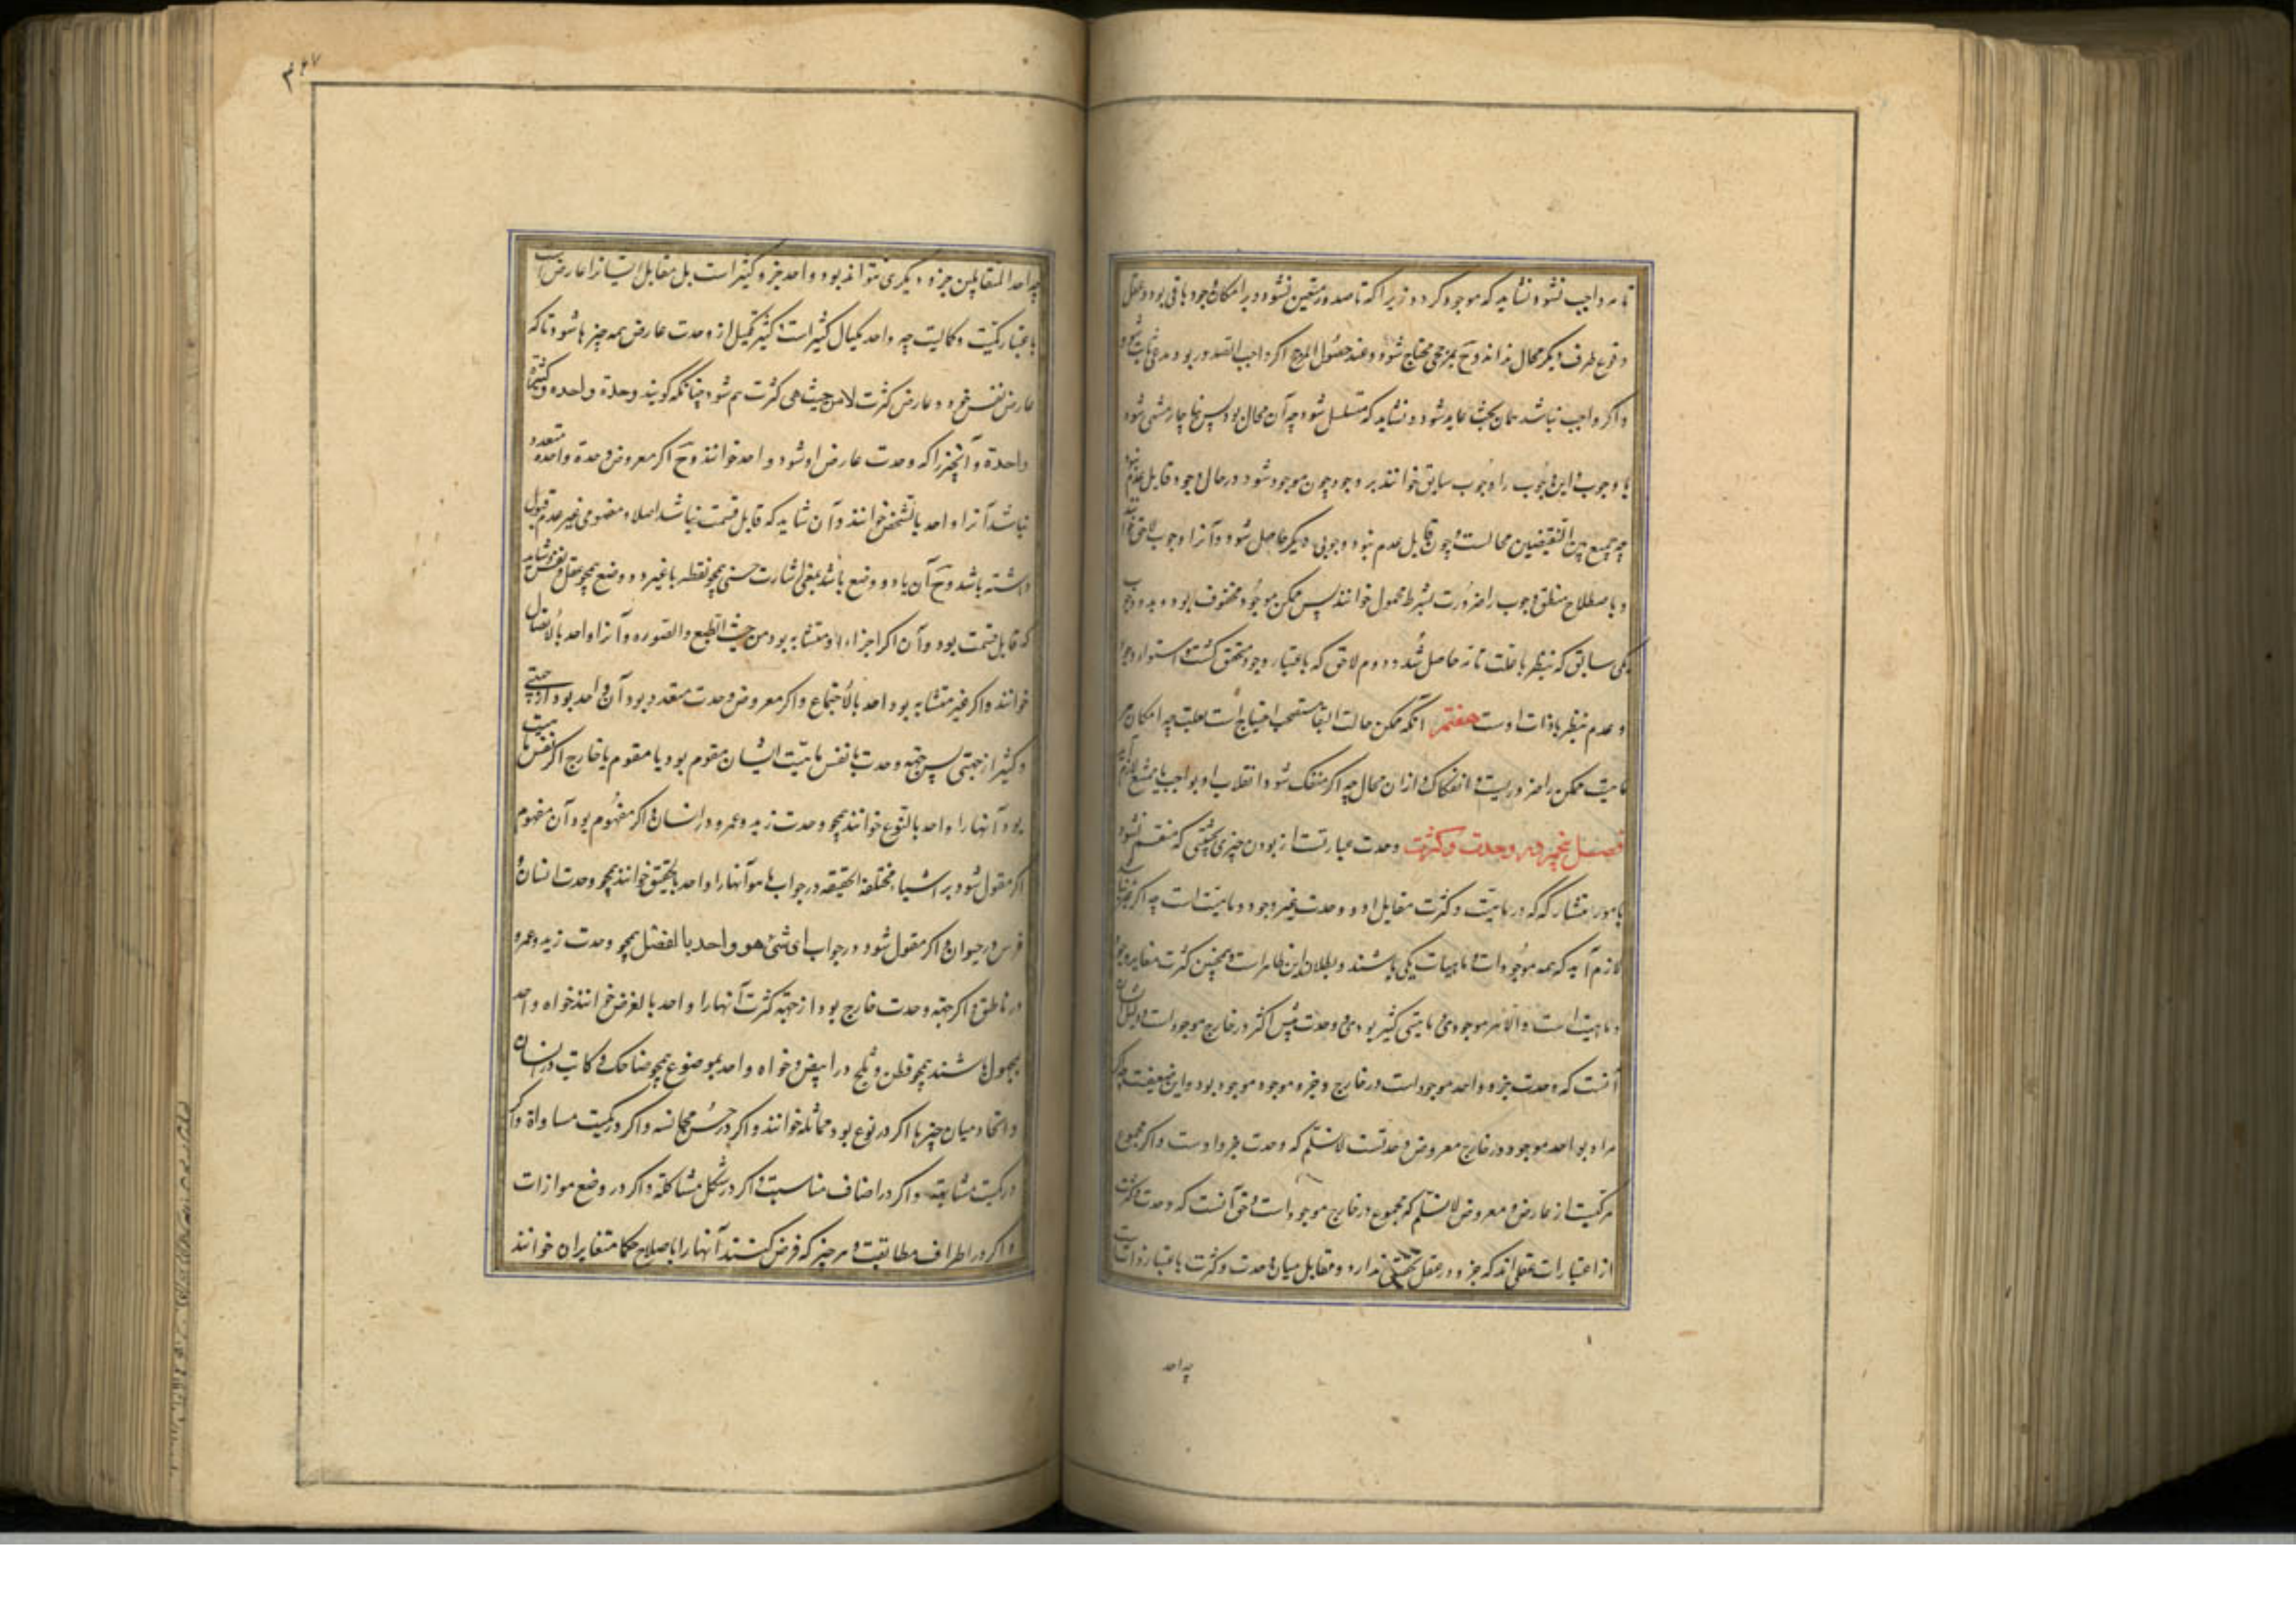 تامه واجب نشود نشاید که موجود گردد زیرا که تا صدور متعین نشود و بر امکان وجود باقی بود و عقل
وقوع طرف دیگر محال نداند و ح بمرجحی محتاج شود و عند حصول المرجح اگر واجب الصدور بود مدعی ثابت شود
و اگر واجب نباشد همان بحث عاید شود و نشاید که متسلسل شود چه آن محال بود پس ناچار منتهی شود
با وجوب و این وجوب را وجوب سابق خوانند بر وجود چون موجود شود در حال وجود قابل عدم نبود
چه جمع بین النقیضین محالست و چون قابل عدم نبود وجوبی دیگر حاصل شود و آنرا وجوب لاحق خوانند
و باصطلاح منطق وجوب را ضرورت بشرط محمول خوانند پس ممکن موجود محفوف بود بدو وجوب
یکی سابق که بنظر با علت تامه حاصل شد و دوم لاحق که باعتبار وجود متحقق گشت و استواء وجود
و عدم بنظر با ذات اوست هفتم آنکه ممکن حالت البقا مستصحب احتیاج است بعلت چه امکان مر
ماهیت ممکن را ضروریست و انفکاک ازان محال چه اگر منفک شود انقلاب او بواجب یا ممتنع لازم آید
فصل پنجم در وحدت و کثرت وحدت عبارتست از بودن چیزی بحیثیتی که منقسم نشود
بامور متشارکه در ماهیت و کثرت مقابل او و وحدت غیر وجود و ماهیت است چه اگر
لازم آید که همه موجودات و ماهیات یکی باشند و بطلان این ظاهر است و همچنین کثرت مغایر وجود
و ماهیت است و الا هر موجودی و ماهیتی کثیر بودی و وحدت پیش اکثر در خارج موجود است و دلیل ایشان
آنست که وحدت جزو واحد موجود است در خارج و جزو موجود موجود بود و این ضعیفست چه اگر
مراد بواحد موجود در خارج معروض وحدتست لانسلم که وحدت جزو اوست و اگر مجموع
مرکبست از عارض و معروض لانسلم که مجموع در خارج موجود است و حق آنست که وحدت و کثرت
از اعتبارات عقلی‌اند که جزو در عقل تحققی ندارد و مقابل میان وحدت و کثرت باعتبار ذات نیست
چه احد
۴۶۷
چه احد المتقابلین جزو دیگری نتواند بود و واحد جزو کثیر است بل مقابل ایشانرا عارض است
باعتبار مکیلیت و کالیت چه واحد مکیال کثیر است و کثیر مکیل از وحدت عارض همه چیزها شود تا که
عارض نفس خود و عارض کثرت لا من حیث هی کثرت هم شود چنانکه گویند وحدة واحدة و کثرة
واحدة و آنچیز را که وحدت عارض او شود واحد خوانند و ح اگر معروض وحدة واحدة متعدد
نباشد آنرا واحد بالشخص خوانند و آن شاید که قابل قسمت نباشد اصلا و مفهومی غیر عدم قبول
داشته باشد و ح آن یا ذو وضع باشد یعنی اشارت حسی همچو نقطه یا غیر ذو وضع همچو عقل و نفس و شاید
که قابل قسمت بود و آن اگر اجزاء او متشابه بود من حیث الطبع و الصوره و آنرا واحد بالاتصال
خوانند و اگر غیر متشابه بود واحد بالاجتماع و اگر معروض وحدت متعدد بود آن واحد بود از جهتی
و کثیر از جهتی پس جهة وحدت یا نفس ماهیت ایشان مقوم بود یا مقوم یا خارج اگر نفس ماهیت
بود آنها را واحد بالنوع خوانند همچو وحدت زید و عمرو در انسان و اگر مفهوم بود آن مفهوم
اگر مقول شود بر اشیاء مختلفة الحقیقه در جواب ما هو آنها را واحد بالتحقیق خوانند همچو وحدت انسان و
فرس در حیوان و اگر مقول شود در جواب ای شئ هو واحد بالفصل همچو وحدت زید و عمرو
در ناطق و اگر جهة وحدت خارج بود از جهة کثرت آنها را واحد بالعرض خوانند خواه واحد
بمحمول باشند همچو قطن و ثلج در ابیض و خواه واحد بموضوع همچو ضاحک و کاتب در انسان
و اتحاد میان چیزها اگر در نوع بود مماثله خوانند و اگر در جنس مجانسه و اگر در کمیت مساواة و اگر
در کیفیت مشابهة و اگر در اضاف مناسبت و اگر در شکل مشاکلة و اگر در وضع موازات
و اگر در اطراف مطابقت و هر چیز که فرض کنند آنها را باصطلاح حکما متغایران خوانند